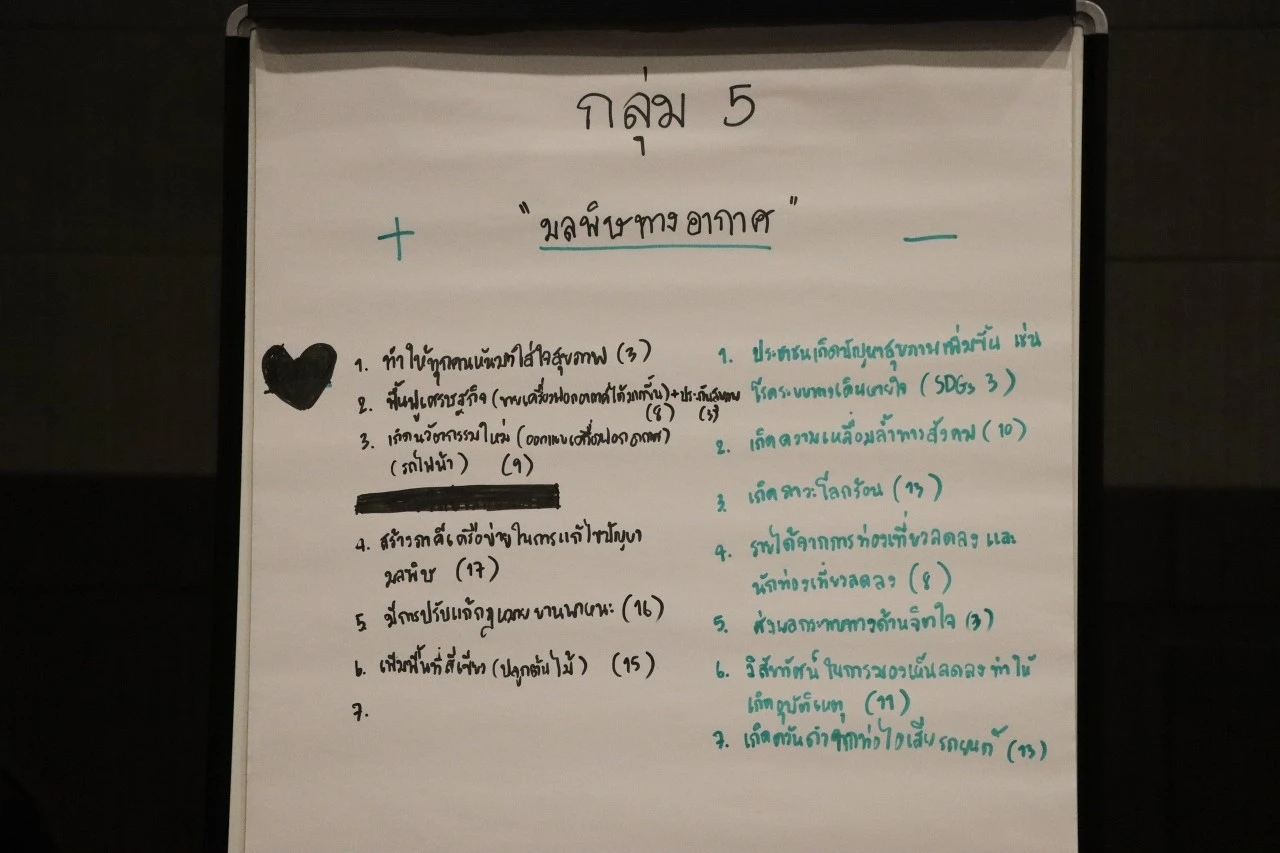 กลุ่ม 5
"มลพิษทางอากาศ"
+
−
1. ทำให้ทุกคนหันมาใส่ใจสุขภาพ (3)
2. ฟื้นฟูเศรษฐกิจ (ขายเครื่องฟอกอากาศได้มากขึ้น) + ประกันสุขภาพ
(8) (3)
3. เกิดนวัตกรรมใหม่ (ออกแบบเครื่องฟอกอากาศ)
(รถไฟฟ้า) (9)
4. สร้างภาคีเครือข่ายในการแก้ไขปัญหา
มลพิษ (17)
5. มีการปรับแก้กฎหมายยานพาหนะ (16)
6. เพิ่มพื้นที่สีเขียว (ปลูกต้นไม้) (15)
7.
1. ประชาชนเกิดปัญหาสุขภาพเพิ่มขึ้น เช่น
โรคระบบทางเดินหายใจ (SDGs 3)
2. เกิดความเหลื่อมล้ำทางสังคม (10)
3. เกิดภาวะโลกร้อน (13)
4. รายได้จากการท่องเที่ยวลดลง และ
นักท่องเที่ยวลดลง (8)
5. ส่งผลกระทบทางด้านจิตใจ (3)
6. วิสัยทัศน์ในการมองเห็นลดลง ทำให้
เกิดอุบัติเหตุ (11)
7. เกิดควันดำจากท่อไอเสียรถยนต์ (13)